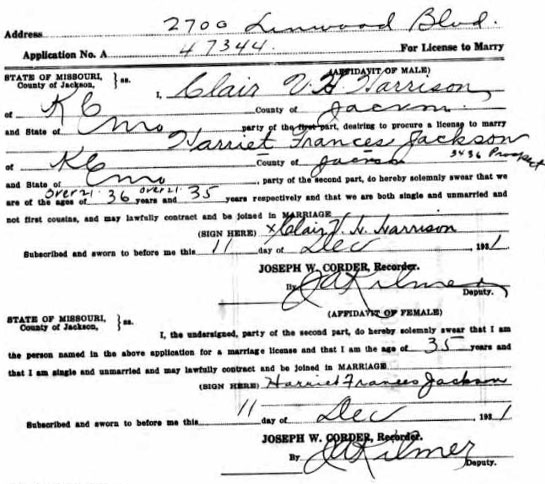 Address 2700 Linwood Blvd.
Application No. A 47344 For License to Marry
STATE OF MISSOURI, County of Jackson, } ss. (AFFIDAVIT OF MALE)
I, Clair V. H. Harrison
of K C County of Jackson
and State of Mo party of the first part, desiring to procure a license to marry
Harriet Frances Jackson
of K C County of Jackson 3436 Prospect
and State of Mo, party of the second part, do hereby solemnly swear that we
are of the ages of over 21 36 years and over 21 35 years respectively and that we are both single and unmarried and
not first cousins, and may lawfully contract and be joined in MARRIAGE
(SIGN HERE) x Clair V. H. Harrison
Subscribed and sworn to before me this 11 day of Dec 1931
JOSEPH W. CORDER, Recorder.
By J A Kilmer Deputy.
(AFFIDAVIT OF FEMALE)
STATE OF MISSOURI, County of Jackson, } ss.
I, the undersigned, party of the second part, do hereby solemnly swear that I am
the person named in the above application for a marriage license and that I am the age of 35 years and
that I am single and unmarried and may lawfully contract and be joined in MARRIAGE
(SIGN HERE) Harriet Frances Jackson
Subscribed and sworn to before me this 11 day of Dec 1931
JOSEPH W. CORDER, Recorder.
By J A Kilmer Deputy.